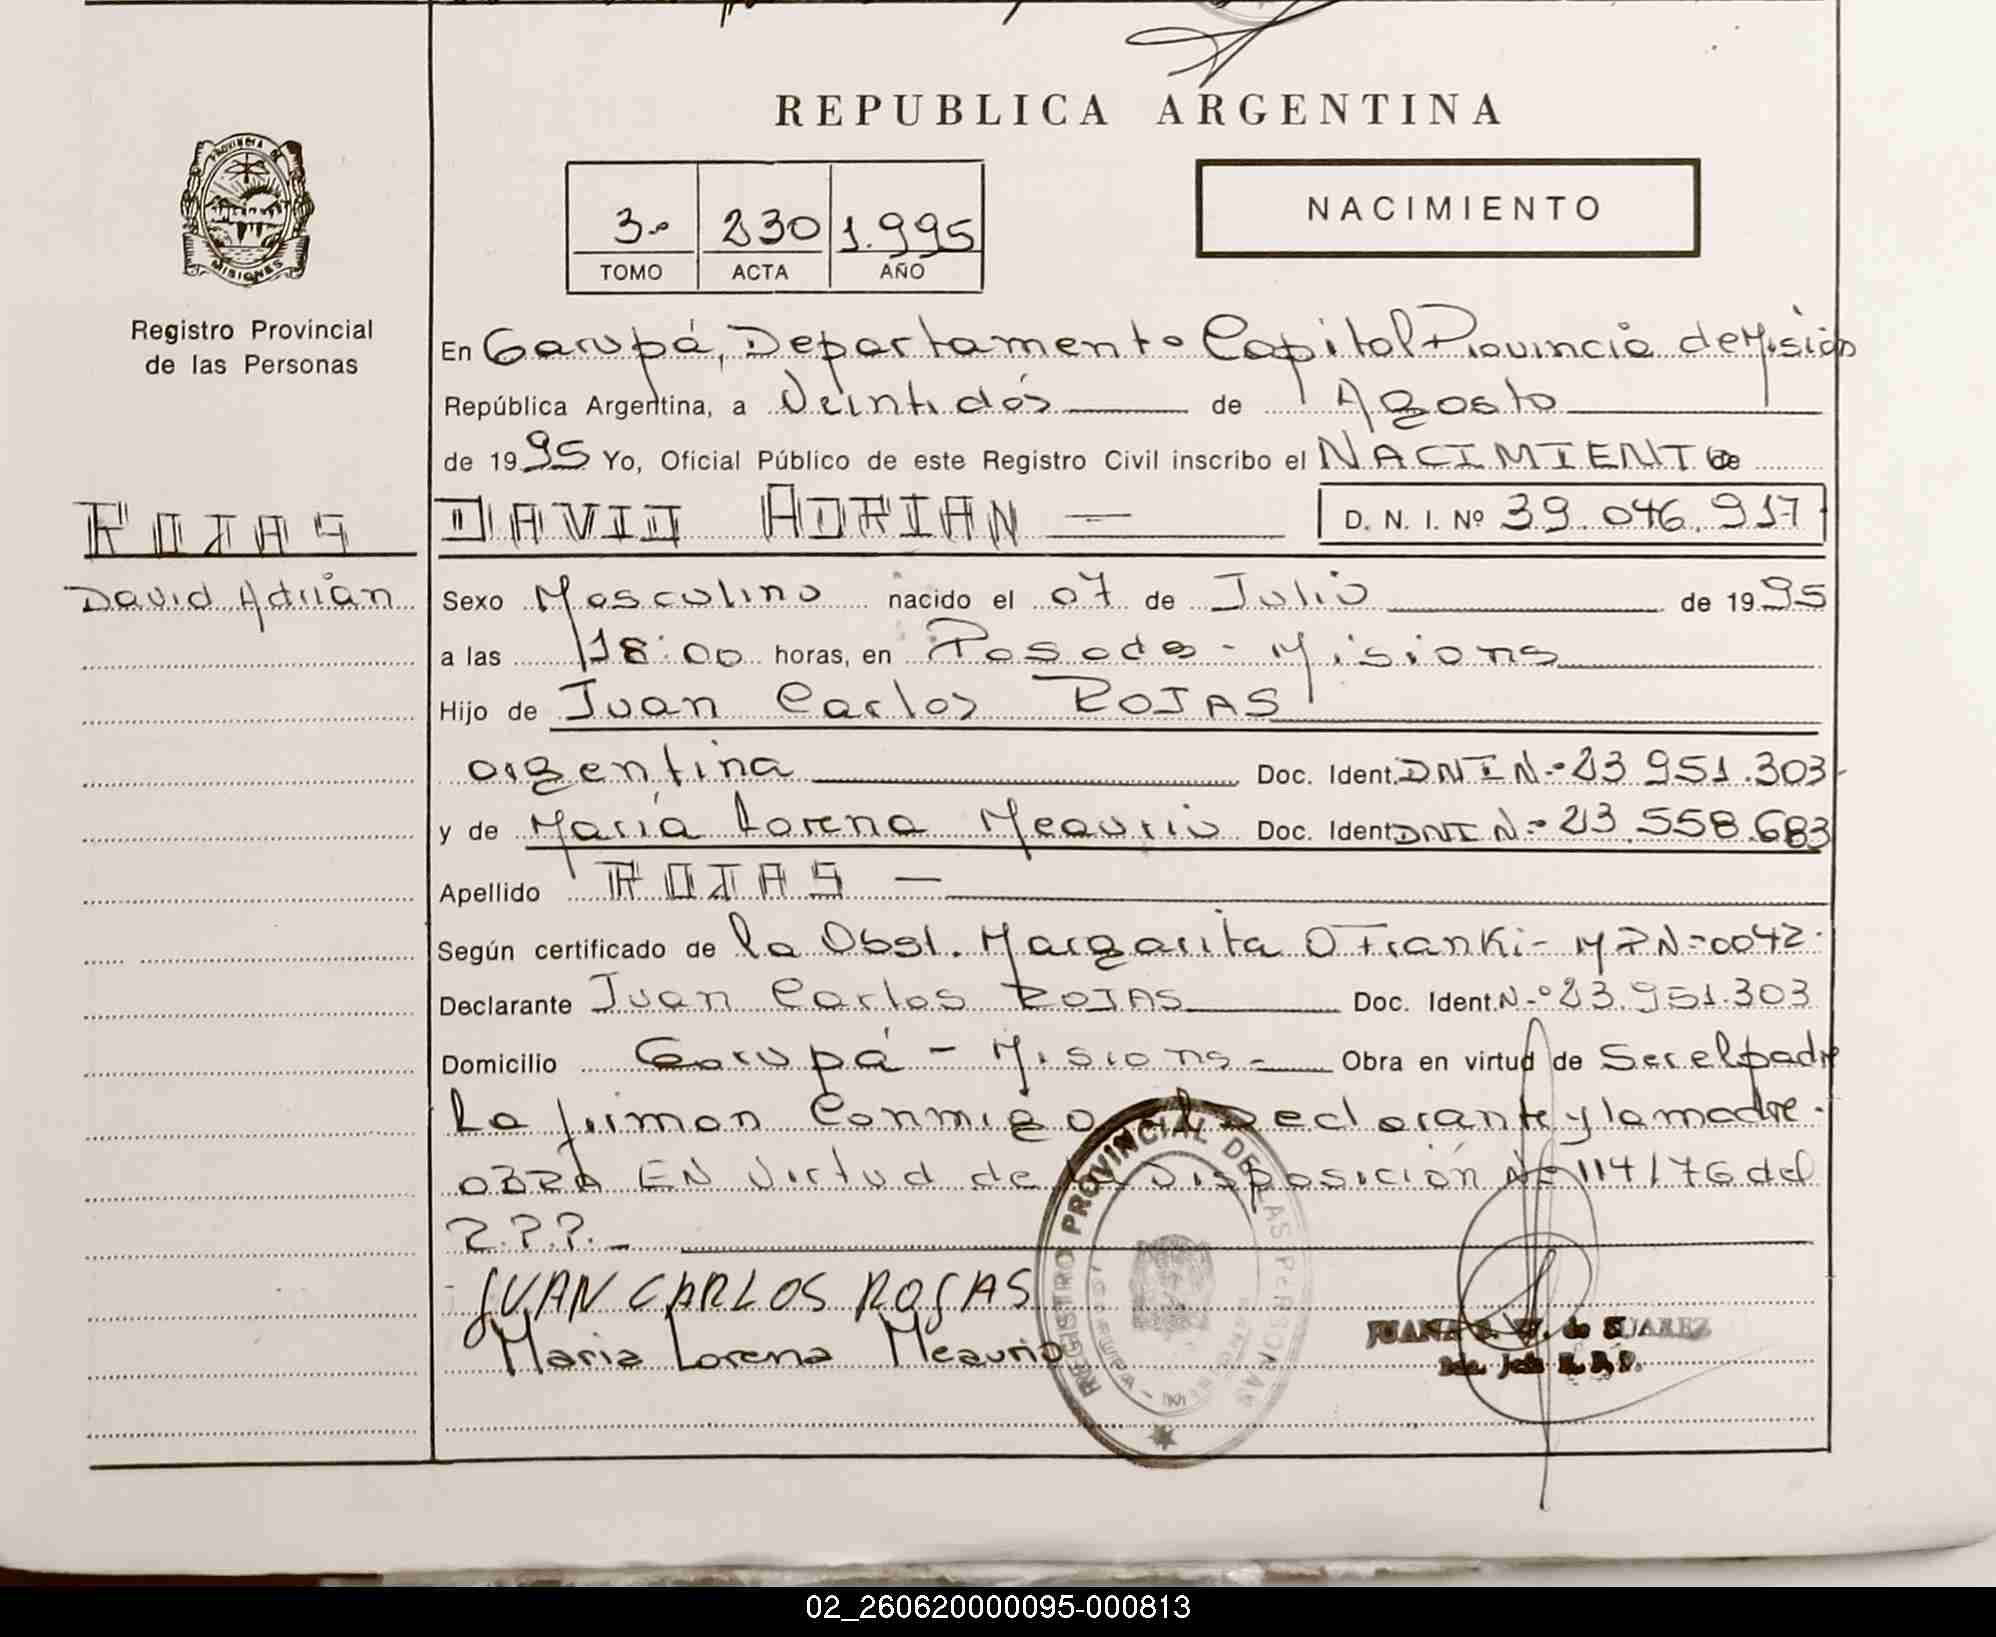 REPUBLICA ARGENTINA
PROVINCIA DE
MISIONES
3º 230 1.995
TOMO ACTA AÑO
NACIMIENTO
Registro Provincial
de las Personas
En Garupá, Departamento Capital Provincia de Mision
República Argentina, a Veintidós de Agosto
de 1995 Yo, Oficial Público de este Registro Civil inscribo el NACIMIENTO de
ROJAS
DAVID ADRIAN — D. N. I. Nº 39.046.917
David Adrián
Sexo Masculino nacido el 07 de Julio de 1995
a las 18:00 horas, en Posadas - Misions
Hijo de Juan Carlos ROJAS
argentina Doc. Ident. DNI Nº 23.951.303
y de María Lorena Meaurio Doc. Ident. DNI Nº 23.558.683
Apellido ROJAS —
Según certificado de la Obst. Margarita O Franki - MPNº 0042.
Declarante Juan Carlos ROJAS Doc. Ident. Nº 23.951.303
Domicilio Garupá - Misions - Obra en virtud de Ser el padre
La firman Conmigo el Declarante y la madre.
OBRA EN Virtud de la Disposición Nº 114/76 del
R.P.P. -
JUAN CARLOS ROJAS
Maria Lorena Meaurio
REGISTRO PROVINCIAL DE LAS PERSONAS
JUANA de SUAREZ
02_260620000095-000813